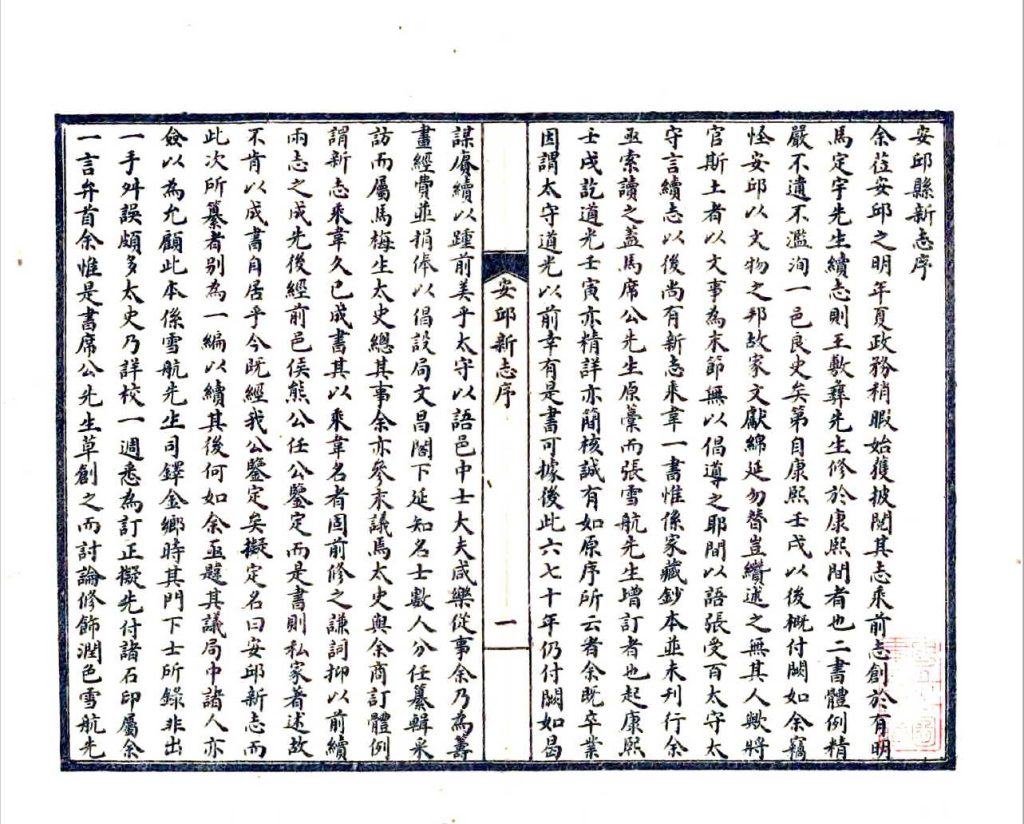 安邱縣新志序
余莅安邱之明年夏政務稍暇始獲披閱其志乘前志創於有明
馬定宇先生續志則王敷彝先生修於康熙間者也二書體例精
嚴不遺不濫洵一邑良史矣第自康熙壬戌以後概付闕如余竊
怪安邱以文物之邦故家文獻綿延勿替豈纘述之無其人歟將
官斯土者以文事為末節無以倡導之耶間以語張受百太守太
守言續志以後尚有新志乘韋一書惟係家藏鈔本並未刊行余
亟索讀之蓋馬席公先生原藁而張雪航先生增訂者也起康熙
壬戌訖道光壬寅亦精詳亦簡核誠有如原序所云者余既卒業
因謂太守道光以前幸有是書可據後此六七十年仍付闕如曷
安邱新志序
一
謀賡續以踵前美乎太守以語邑中士大夫咸樂從事余乃為籌
畫經費並捐俸以倡設局文昌閣下延知名士數人分任纂輯采
訪而屬馬梅生太史總其事余亦參末議馬太史與余商訂體例
謂新志乘韋久已成書其以乘韋名者固前修之謙詞抑以前續
兩志之成先後經前邑侯熊公任公鑒定而是書則私家著述故
不肯以成書自居乎今既經我公鑒定矣擬定名曰安邱新志而
此次所纂者别為一編以續其後何如余亟韙其議局中諸人亦
僉以為允顧此本係雪航先生司鐸金鄉時其門下士所錄非出
一手舛誤頗多太史乃詳校一週悉為訂正擬先付諸石印屬余
一言弁首余惟是書席公先生草創之而討論修飾潤色雪航先